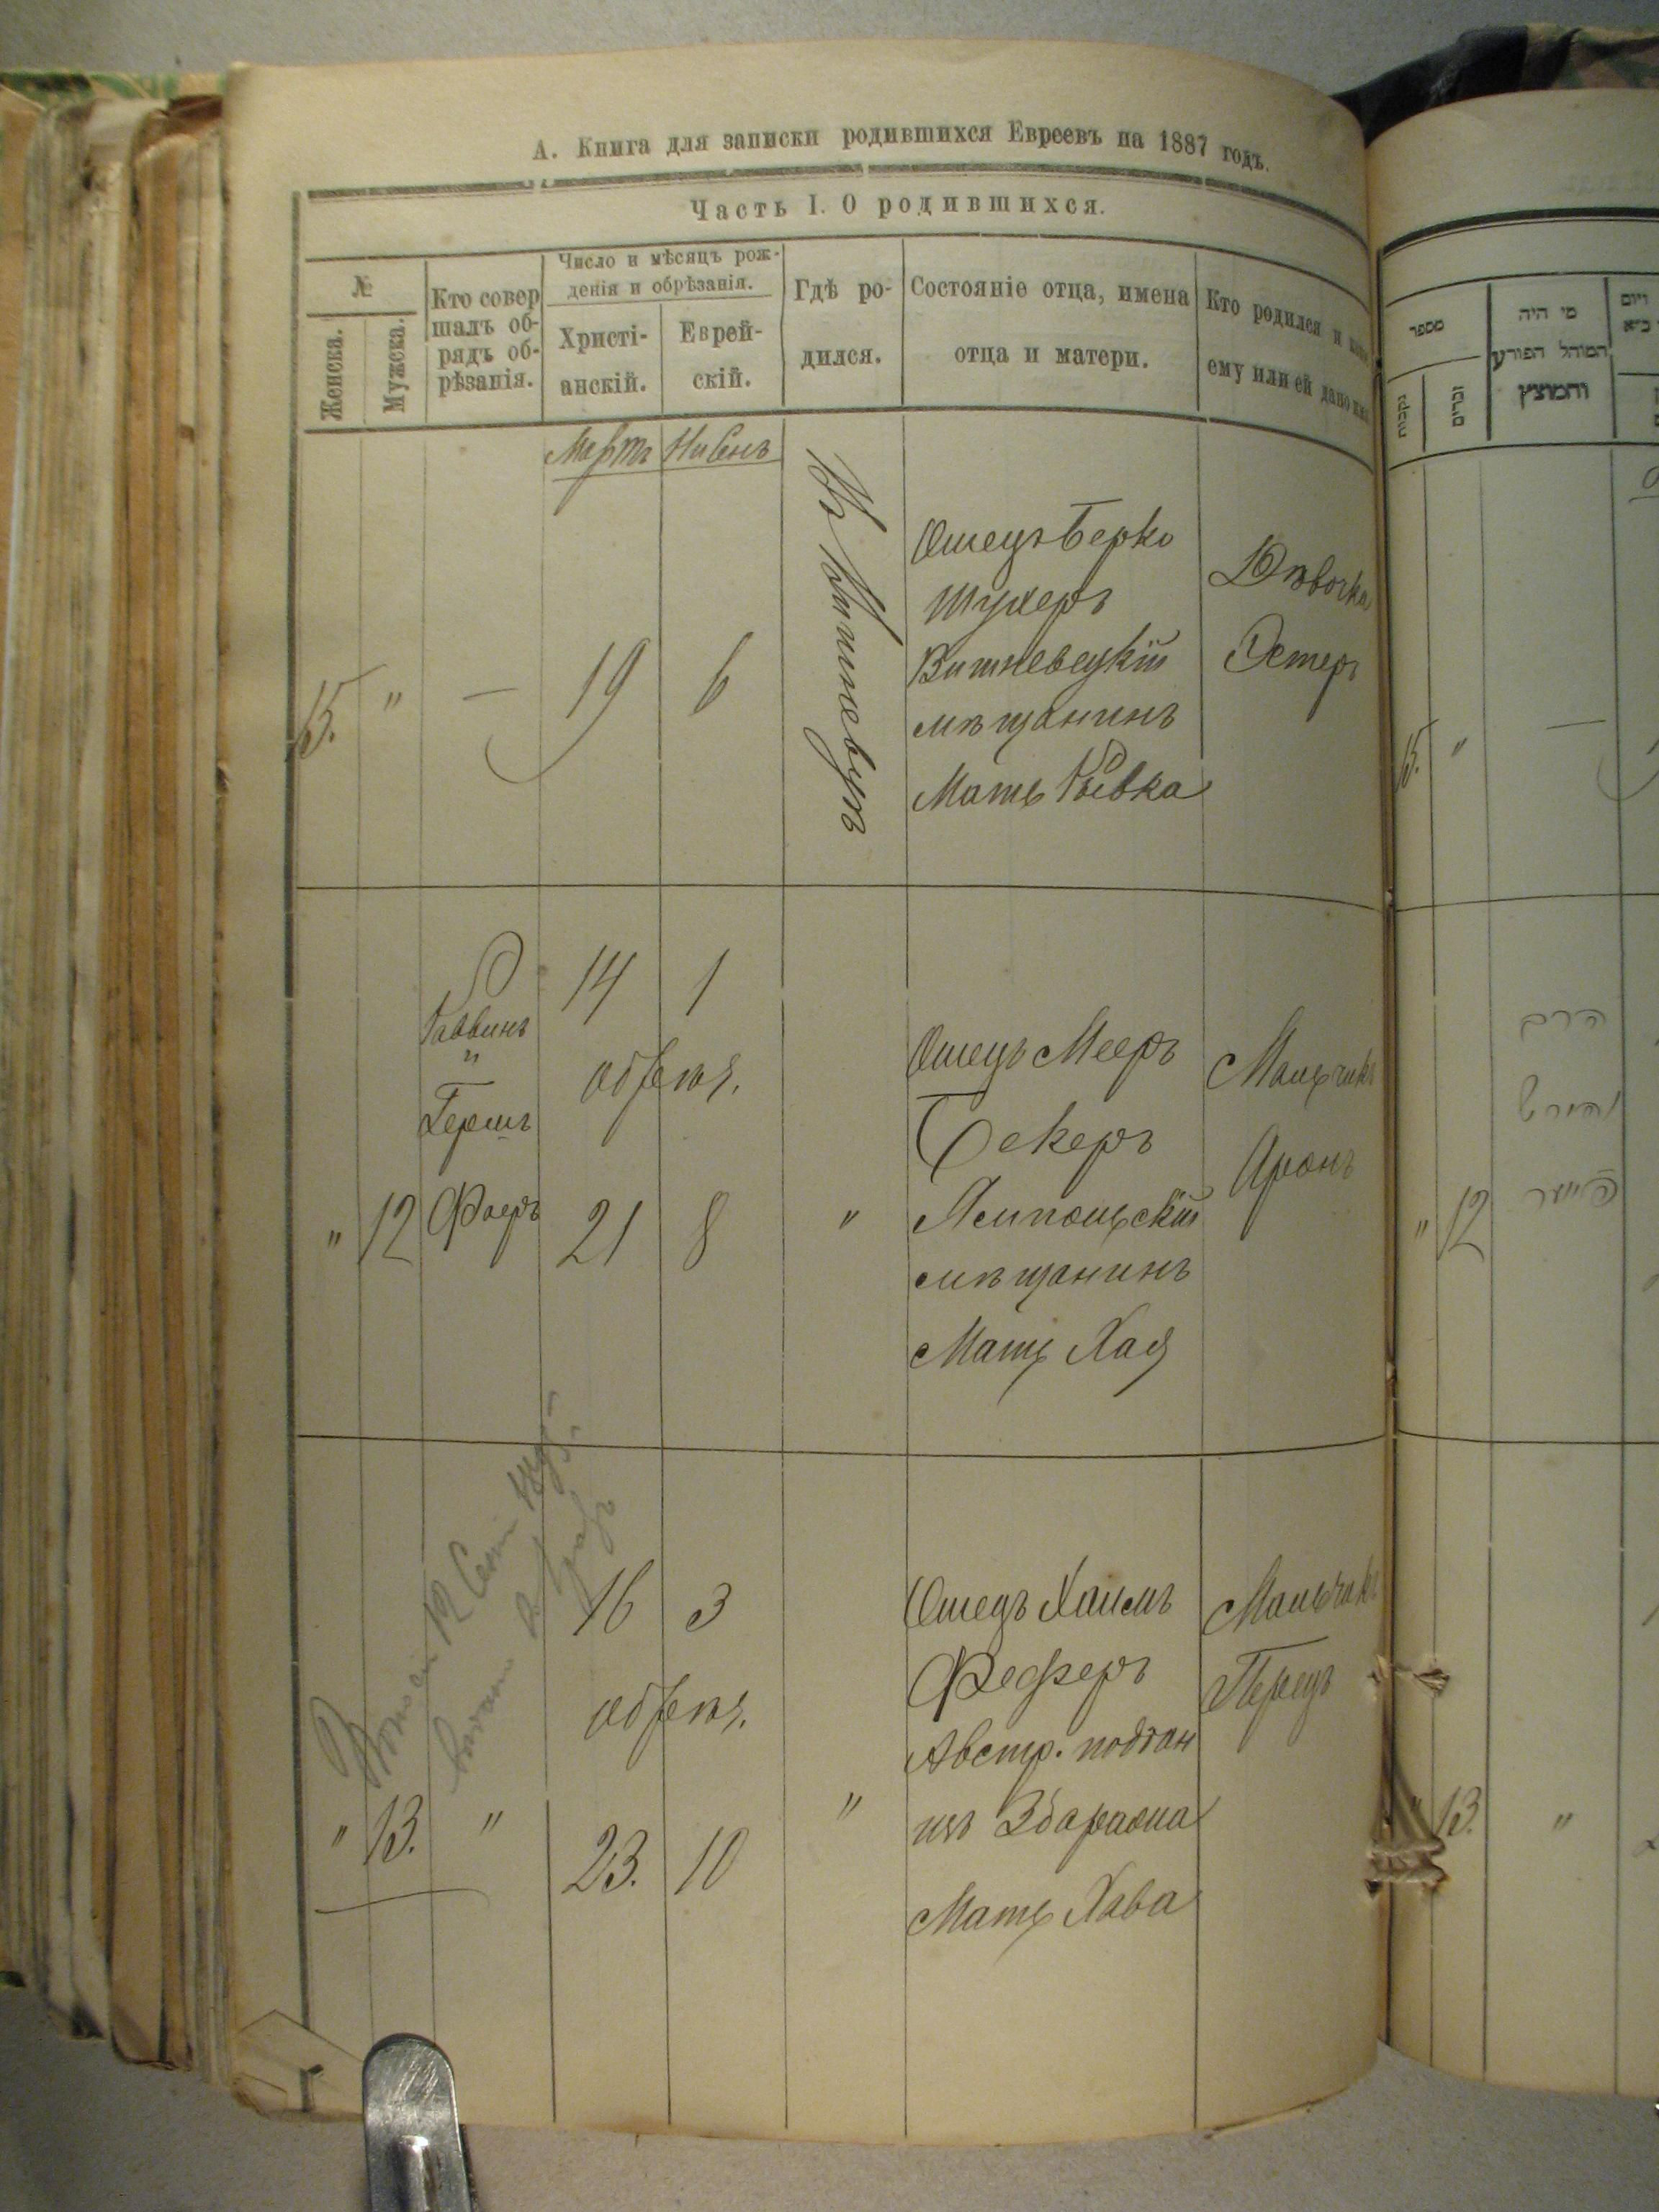 А. Книга для записки родившихся Евреевъ на 1887 годъ.
Часть I. О родившихся.
№
Женска.
Мужска.
Кто совер
шалъ об-
рядъ об-
рѣзанія.
Число и мѣсяцъ рож-
денія и обрѣзанія.
Христі-
анскій.
Еврей-
скій.
Гдѣ ро-
дился.
Состояніе отца, имена
отца и матери.
Кто родился и
ему или ей дано
Мартъ Нисенъ
15. " — 19 6
Въ Вишневцѣ
Отецъ Берко
Шухеръ
Вишневецкій
мѣщанинъ
Мать Рывка
Дѣвочка
Эстеръ
" 12
Раввинъ
и
Гершъ
Фаеръ
14 1
обрѣз.
21 8
"
Отецъ Мееръ
Бекеръ
Ямпольскій
мѣщанинъ
Мать Хая
Мальчикъ
Аронъ
" 13. "
16 3
обрѣз.
23. 10
"
Отецъ Хаимъ
Феферъ
Австр. поддан
изъ Збаража
Мать Хава
Мальчикъ
Перецъ
מספר
נקבות
זכרים
מי היה
המוהל הפורע
והמוצץ
ויום
15. " —
" 12
הרב
והירש
פייער
13. "